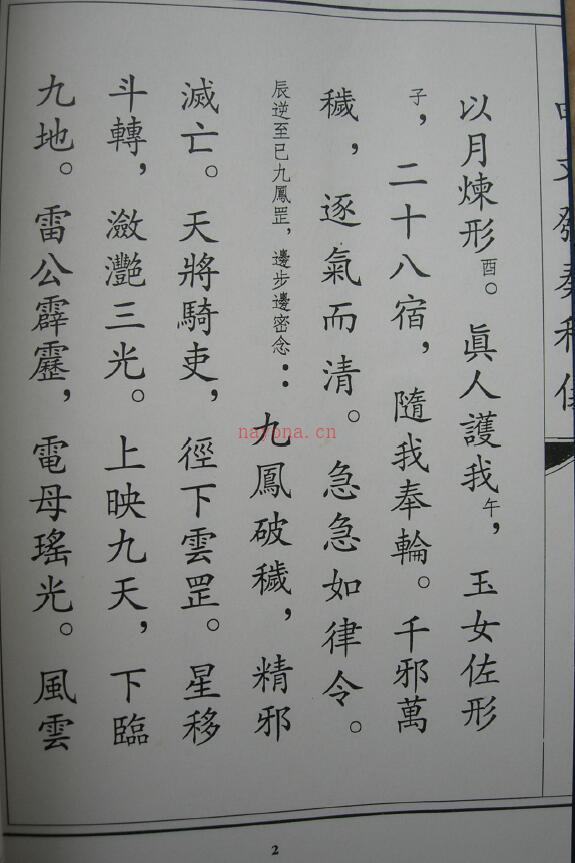 以月煉形酉。眞人護我午，玉女佐形
子，二十八宿，隨我奉輪。千邪萬
穢，逐氣而清。急急如律令。
辰逆至巳九鳳罡，邊步邊密念：九鳳破穢，精邪
滅亡。天將騎吏，徑下雲罡。星移
斗轉，瀲灩三光。上映九天，下臨
九地。雷公霹靂，電母瑤光。風雲
2
nayona.cn